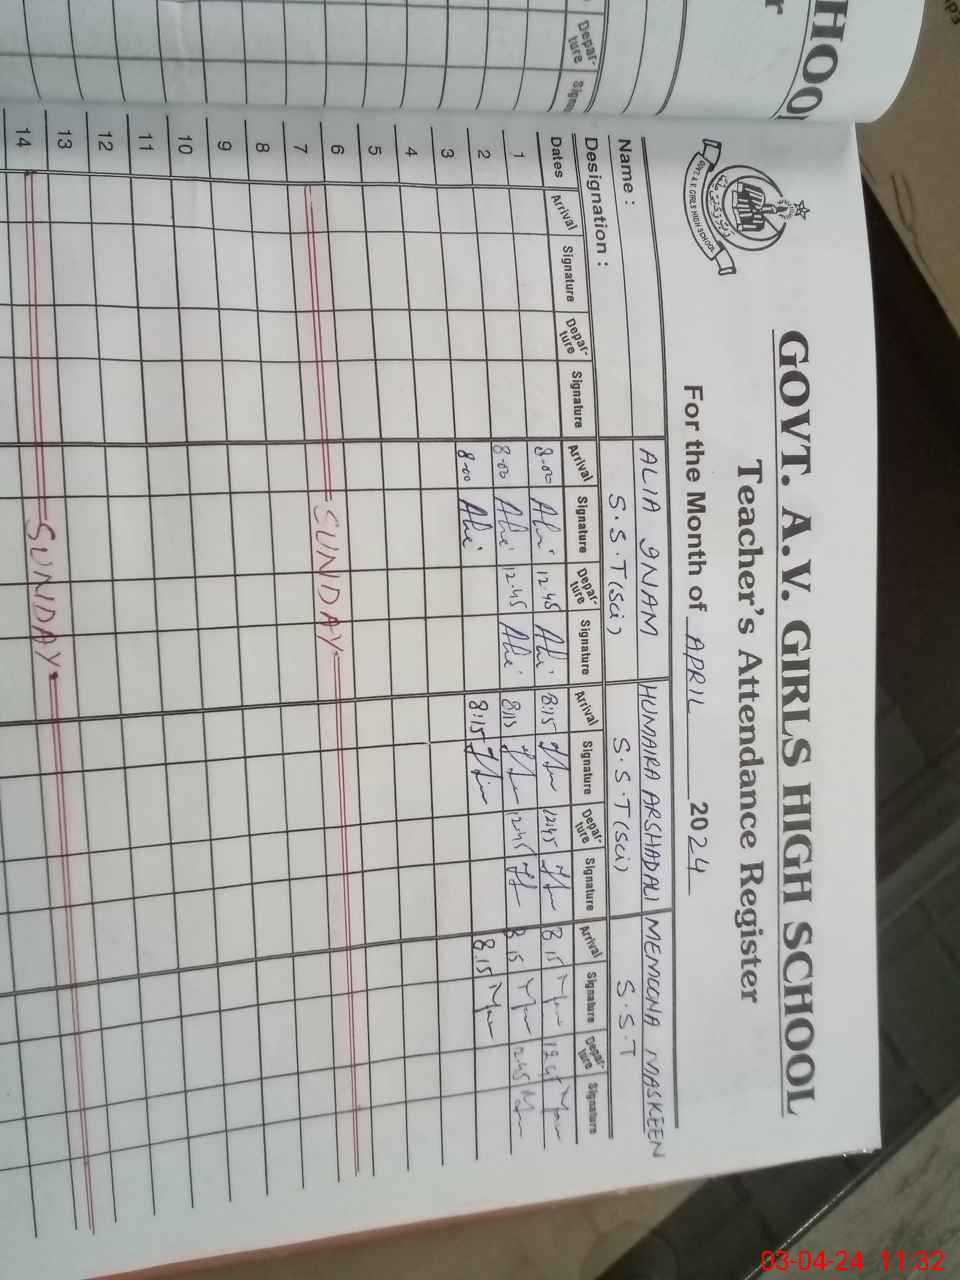 HOO
Depar-
ture
GOVT. A.V. GIRLS HIGH SCHOOL
Teacher's Attendance Register
For the Month of APRIL 2024
GOVT A V GIRLS HIGH SCHOOL
Name : ALIA INAM HUMAIRA ARSHAD ALI MEMOONA MASKEEN
Designation : S.S.T(Sci) S.S.T(Sci) S.S.T
Dates Arrival Signature Depar-ture Signature Arrival Signature Depar-ture Signature Arrival Signature Depar-ture Signature Arrival Signature Depar-ture Signature
1 8.00 12.45 8:15 12:45 8.15 12.45
2 8.00 12.45 8:15 12.45 8.15 12.45
3 8.00 8:15 8.15
4
5
6
7 SUNDAY
8
9
10
11
12
13
14 SUNDAY
03-04-24 11:32